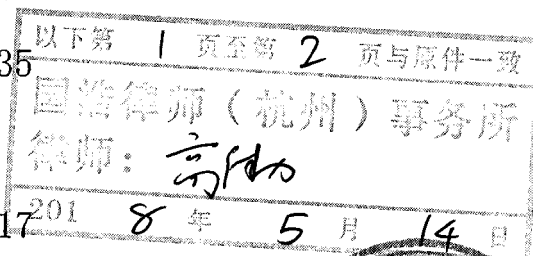 以下第 1 页至第 2 页与原件一致
35
国浩律师（杭州）事务所
律师：高
17
2018 年 5 月 14 日